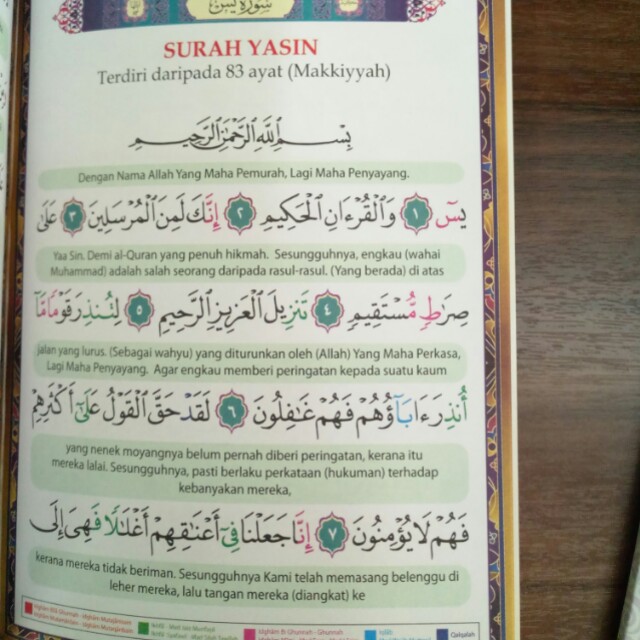 سورة يس
SURAH YASIN
Terdiri daripada 83 ayat (Makkiyyah)
بِسْمِ اللَّهِ الرَّحْمَٰنِ الرَّحِيمِ
Dengan Nama Allah Yang Maha Pemurah, Lagi Maha Penyayang.
يسٓ ١ وَالْقُرْءَانِ الْحَكِيمِ ٢ إِنَّكَ لَمِنَ الْمُرْسَلِينَ ٣ عَلَىٰ
Yaa Sin. Demi al-Quran yang penuh hikmah. Sesungguhnya, engkau (wahai
Muhammad) adalah salah seorang daripada rasul-rasul. (Yang berada) di atas
صِرَٰطٍ مُّسْتَقِيمٍ ٤ تَنزِيلَ الْعَزِيزِ الرَّحِيمِ ٥ لِتُنذِرَ قَوْمًا مَّآ
jalan yang lurus. (Sebagai wahyu) yang diturunkan oleh (Allah) Yang Maha Perkasa,
Lagi Maha Penyayang. Agar engkau memberi peringatan kepada suatu kaum
أُنذِرَ ءَابَآؤُهُمْ فَهُمْ غَٰفِلُونَ ٦ لَقَدْ حَقَّ الْقَوْلُ عَلَىٰٓ أَكْثَرِهِمْ
yang nenek moyangnya belum pernah diberi peringatan, kerana itu
mereka lalai. Sesungguhnya, pasti berlaku perkataan (hukuman) terhadap
kebanyakan mereka,
فَهُمْ لَا يُؤْمِنُونَ ٧ إِنَّا جَعَلْنَا فِىٓ أَعْنَٰقِهِمْ أَغْلَٰلًا فَهِىَ إِلَى
kerana mereka tidak beriman. Sesungguhnya Kami telah memasang belenggu di
leher mereka, lalu tangan mereka (diangkat) ke
Qalqalah